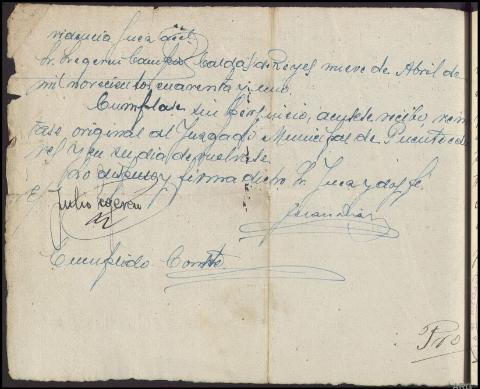 videncia Juez del
Sr. Regerau Campos. Caldas de Reyes nueve de Abril de
mil novecientos cuarenta y uno.
Cumplase sin perjuicio, acusese recibo, remi
tase original al Juzgado Municipal de Puentece
y en su dia devuelvase
Lo dispuso y firma dicho Sr. Juez y doy fé.
Julio
Cumplido. Consta
Pro